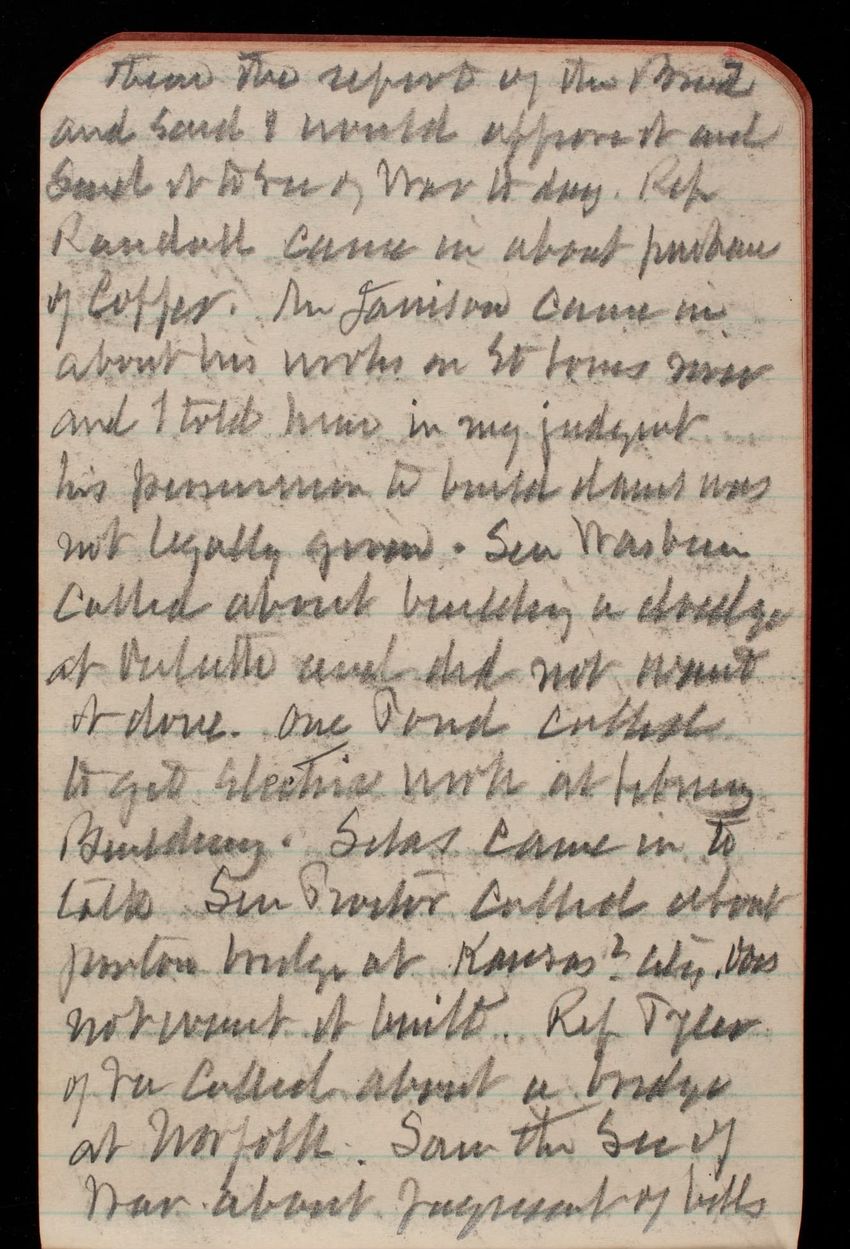 them the report of the Board
and said I would approve it and
Send it to Sec of War to day. Rep
Randall came in about purchase
of Coffer. Mr Jamison came in
about his works on St Louis river
and I told him in my judgmt
his permission to build dams was
not legally given. Sen Wasburn
Called about building a dredge
at Duluth and did not want
it done. One Pond called
to get Electric work at library
Building. Silas came in to
talk Sen Proctor called about
ponton bridge at Kansas? city. Does
not want it built. Rep Tyler
of Va Called about a bridge
at Norfolk. Saw the Sec of
War about payment of bills